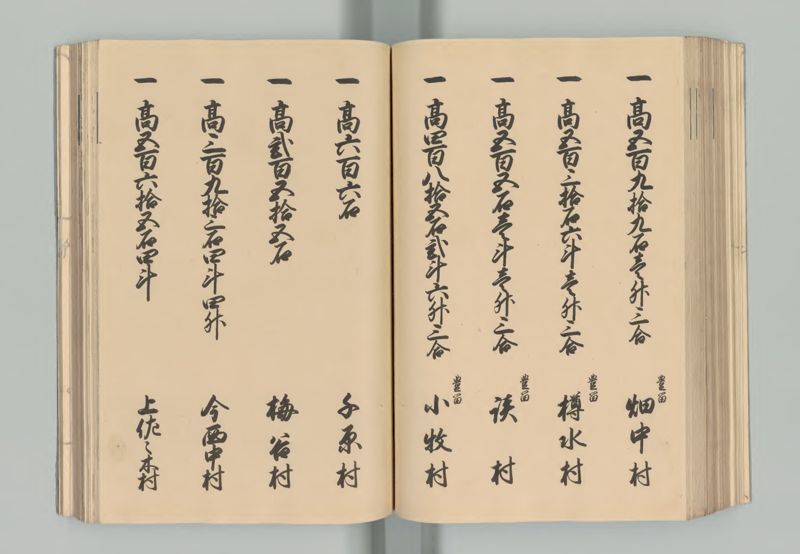 一 高五百九拾九石壱斗壱升三合
豊富
畑中村
一 高五百三拾石六斗壱升三合
豊富
樽水村
一 高五百五石壱斗壱升三合
豊富
談村
一 高四百八拾五石弐斗六升三合
豊富
小牧村
一 高六百六石
千原村
一 高弐百五拾五石
梅谷村
一 高三百九拾三石四斗四升
今西中村
一 高五百六拾五石四斗
上佐々木村